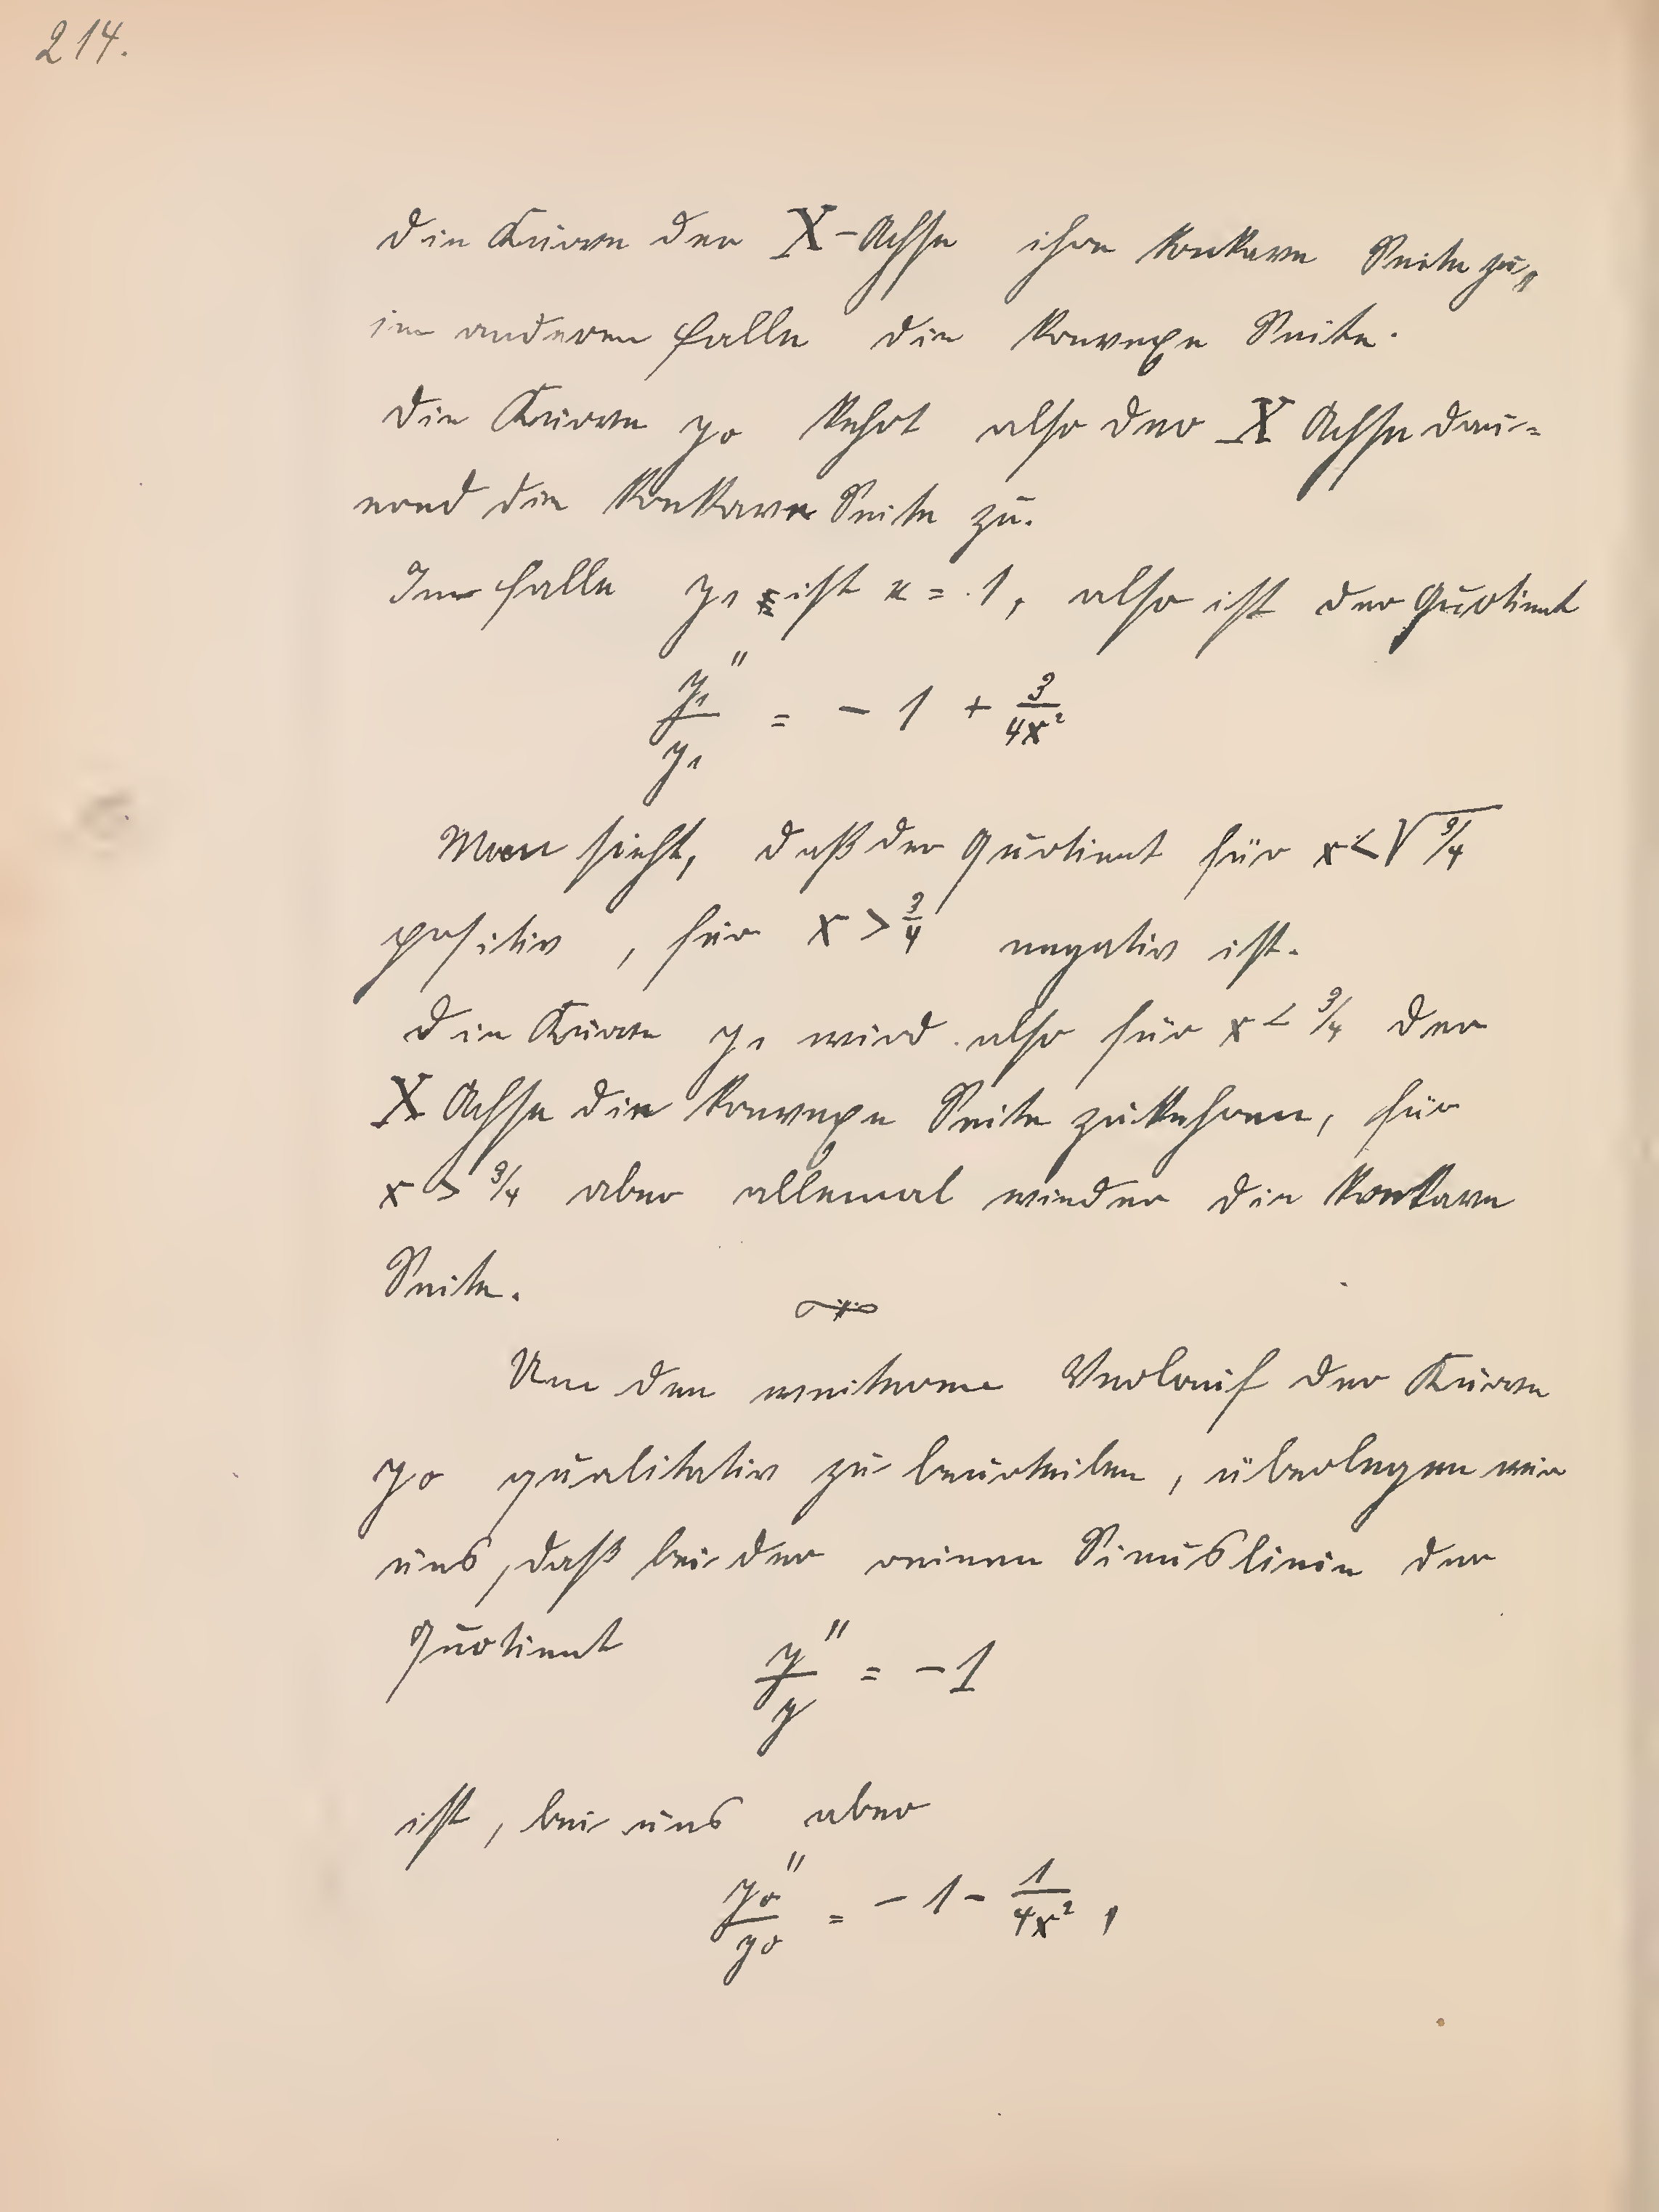 214.
die Kurve der X-Achse ihre konkave Seite zu,
im anderen Falle die konvexe Seite.
Die Kurve y₀ kehrt also der X Achse dau-
ernd die konkave Seite zu.
Im Falle y₁ ist n = 1, also ist der Quotient
y₁''/y₁ = - 1 + 3/4x²
Man sieht, daß der Quotient für x < √3/4
positiv, für x > 3/4 negativ ist.
Die Kurve y₁ wird also für x < 3/4 der
X Achse die konvexe Seite zukehren, für
x > 3/4 aber allemal wieder die konkave
Seite.
Um den weiteren Verlauf der Kurve
y₀ qualitativ zu beurteilen, überlegen wir
uns, daß bei der reinen Sinuslinie der
Quotient y''/y = -1
ist, bei uns aber
y₀''/y₀ = - 1 - 1/4x²,